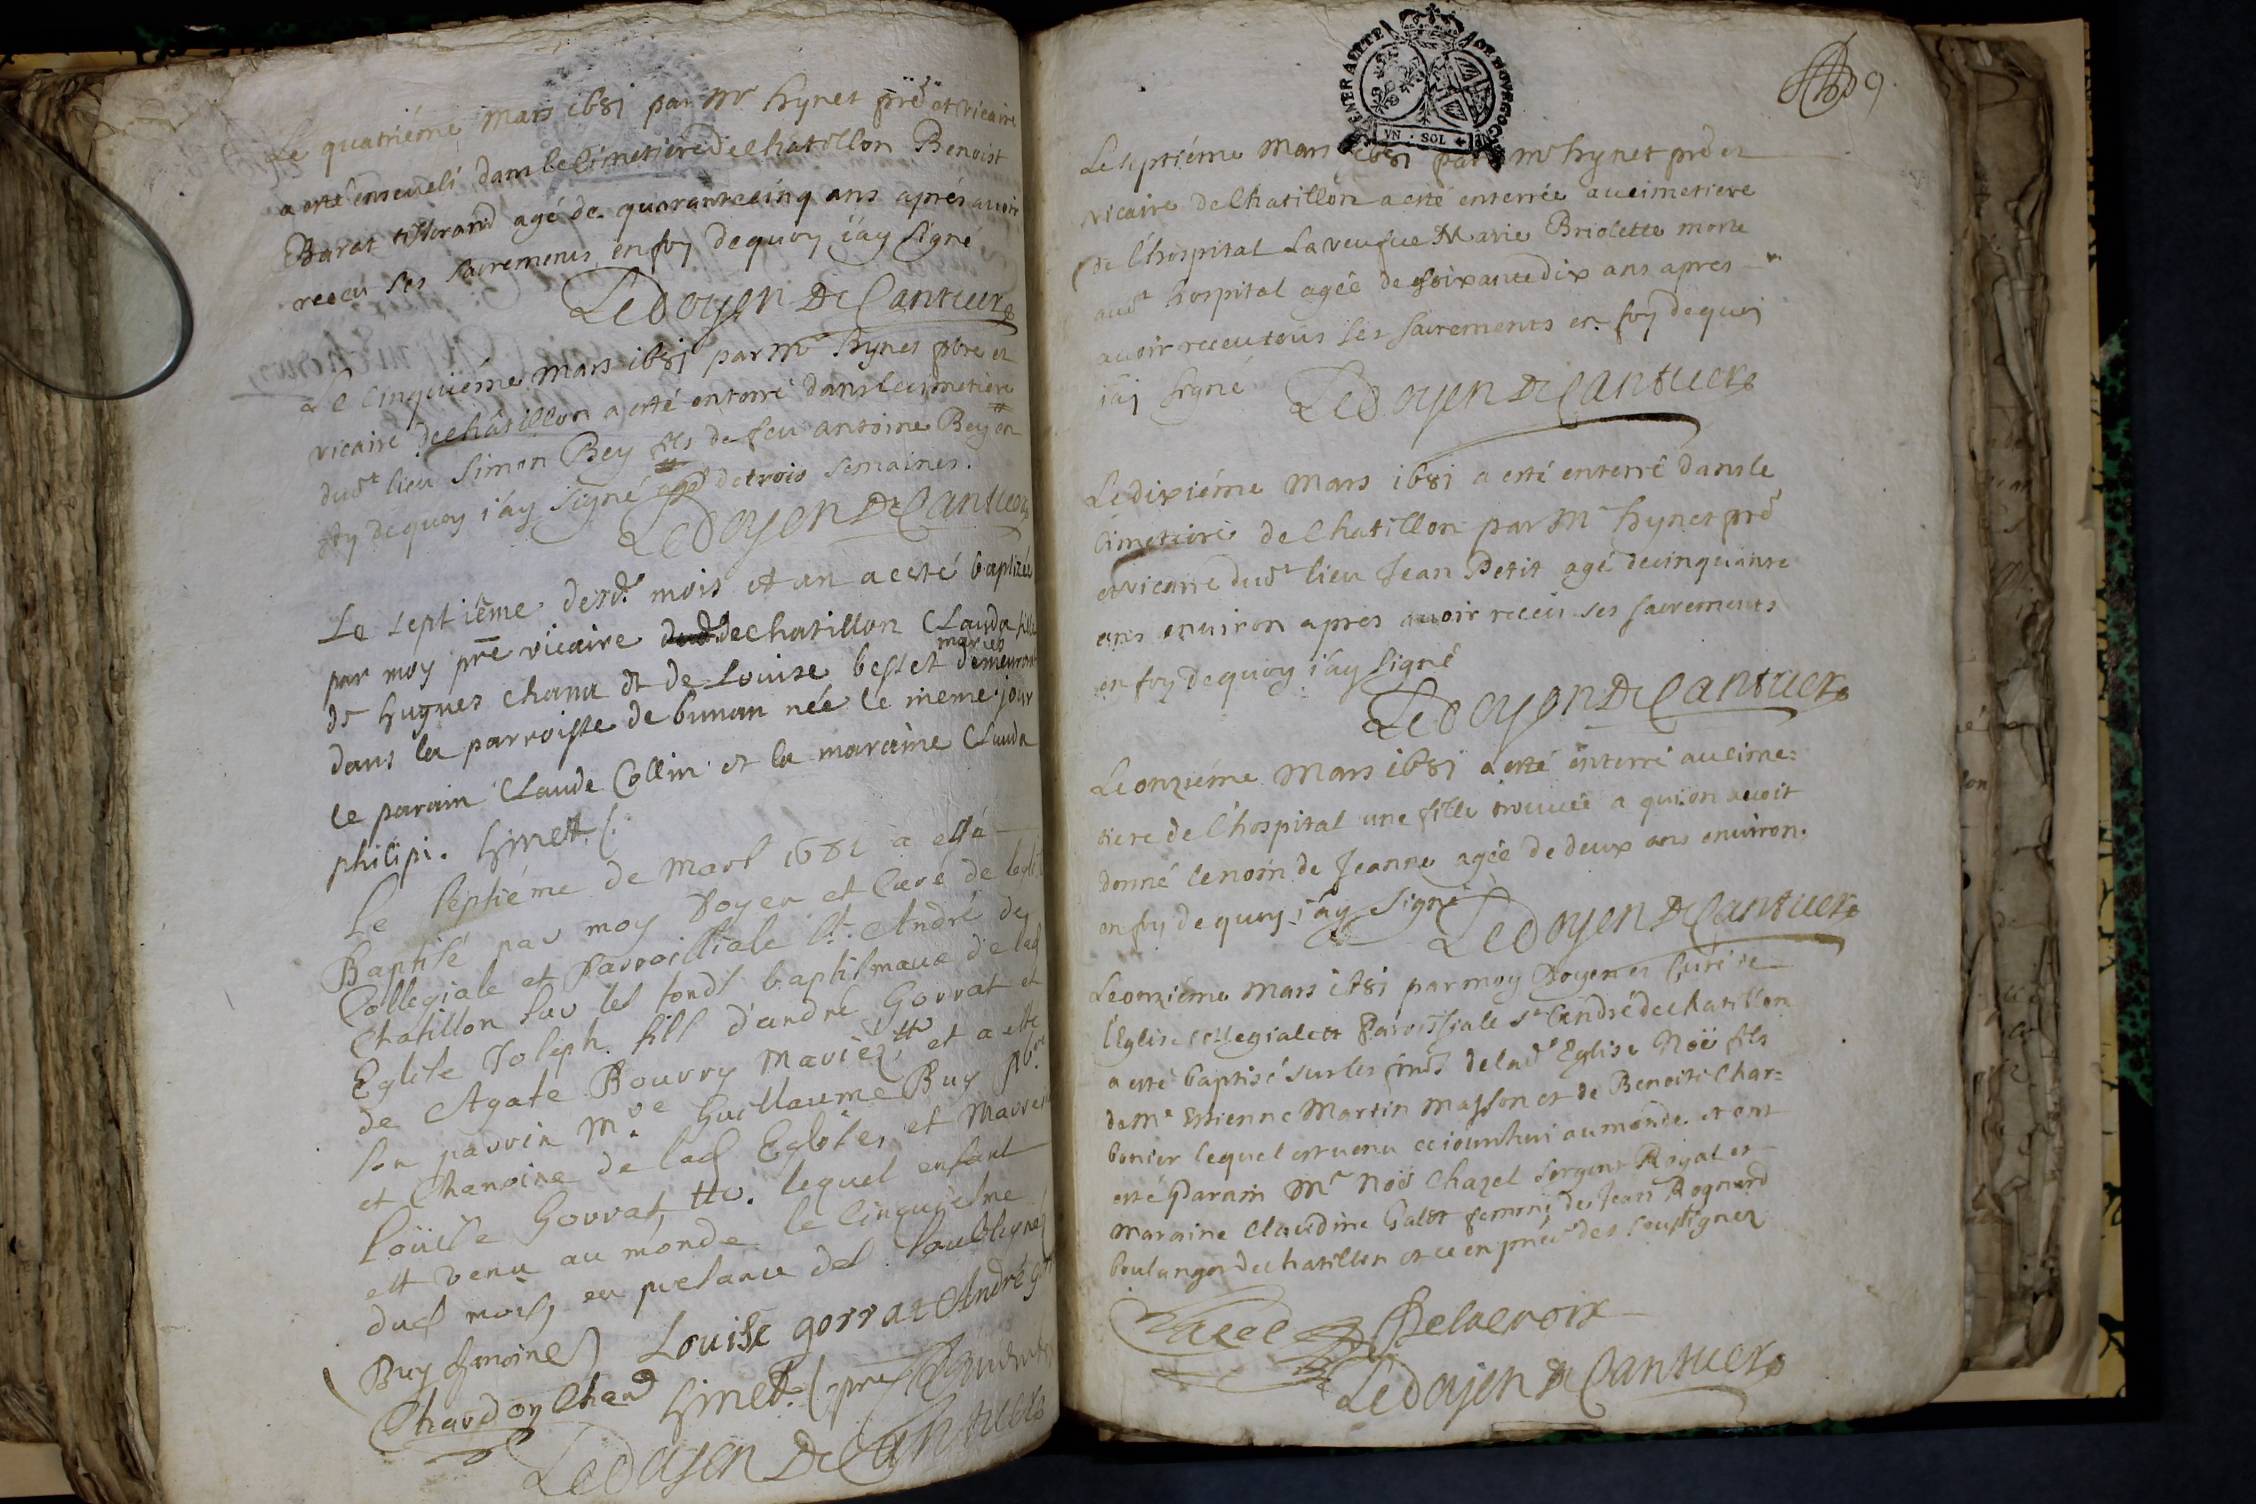 Le quatriéme mars 1681 par Mr hynet pre et vicaire
a esté enseveli dans le Cimetiere de Chatillon Benoist
Barat tisserand agé de quarantecinq ans aprés avoir
receu ses sacremens en foy dequoy i'ay signé
Le doyen De Cantuer
Le cinquiéme mars 1681 par Mr hynet pbre et
vicaire de châtillon a esté enterré dans le cimetiere
dudt lieu Simon Bey fils de feu antoine Bey en
foy dequoy i'ay signé agé de trois semaines.
Le doyen De Cantuer
Le septiême desd. mois et an a esté baptizée
par moy pre vicaire de chatillon Clauda fille
de hugues chanu et de Louise besset mariés demeurant
dans la parroisse de bunan née le meme jour
le parain Claude Collin et la maraine Clauda
philipi. hinet
Le septiéme de Mars 1681 a esté
Baptisé par moy Doyen et Curé de leglise
Collegiale et Parroissiale St. André de
Chatillon sur les fonds baptismaux de lad
Eglise Joseph fils d'andre Gorrat et
de Agate Bourry Mariez et a esté
son parrin Mre Guillaume Buy pbre
et Chanoine de lad Eglise, et Marreine
Loüise Gorrat, lequel enfant
est venu au monde le Cinquiesme
dud mois en presance des soubsignez
Buy chanoine Louise gorrat André
Chardon Chan hinet pre
Le doyen De Cantuer
GENERALITE DE BOVRGOGNE
VN · SOL
9
Le septiéme Mars 1681 par Mr hynet pre et
vicaire de Chatillon a esté enterrée au cimetiere
de l'hospital La veufue Marie Briolette morte
audt hospital agée de soixantedix ans apres
avoir receu tous ses sacrements en foy dequoi
i'ai signé Le doyen De Cantuer
Le dixiéme Mars 1681 a esté enterré dans le
Cimetiere de Chatillon par Mr hynet pre
et vicaire dudt lieu Jean Petit agé de cinquante
ans environ apres avoir receu ses sacrements
en foy dequoy i'ay signé
Le doyen De Cantuer
Le onziéme Mars 1681 a esté enterré au cime=
tiere de l'hospital une fille trouuée a qui on avoit
donné le nom de Jeanne agée de deux ans environ.
en foy de quoy i'ay signé Le doyen De Cantuer
Le onziéme Mars 1681 par moy Doyen et Curé de
l'Eglise collegiale et Paroissiale St André de chatillon
a esté baptisé sur les fonds de lade Eglise Noë fils
de Mr Estienne Martin masson et de Benoite Char=
bonier lequel est venu ceiourdhui au monde. et ont
esté Parain Mr Noë Chazel sergent Royal et
maraine Claudine Galet femme de Jean Rognard
boulanger de chatillon et ce en pnce des soussignez
Chazel Delacroix
Le doyen De Cantuer